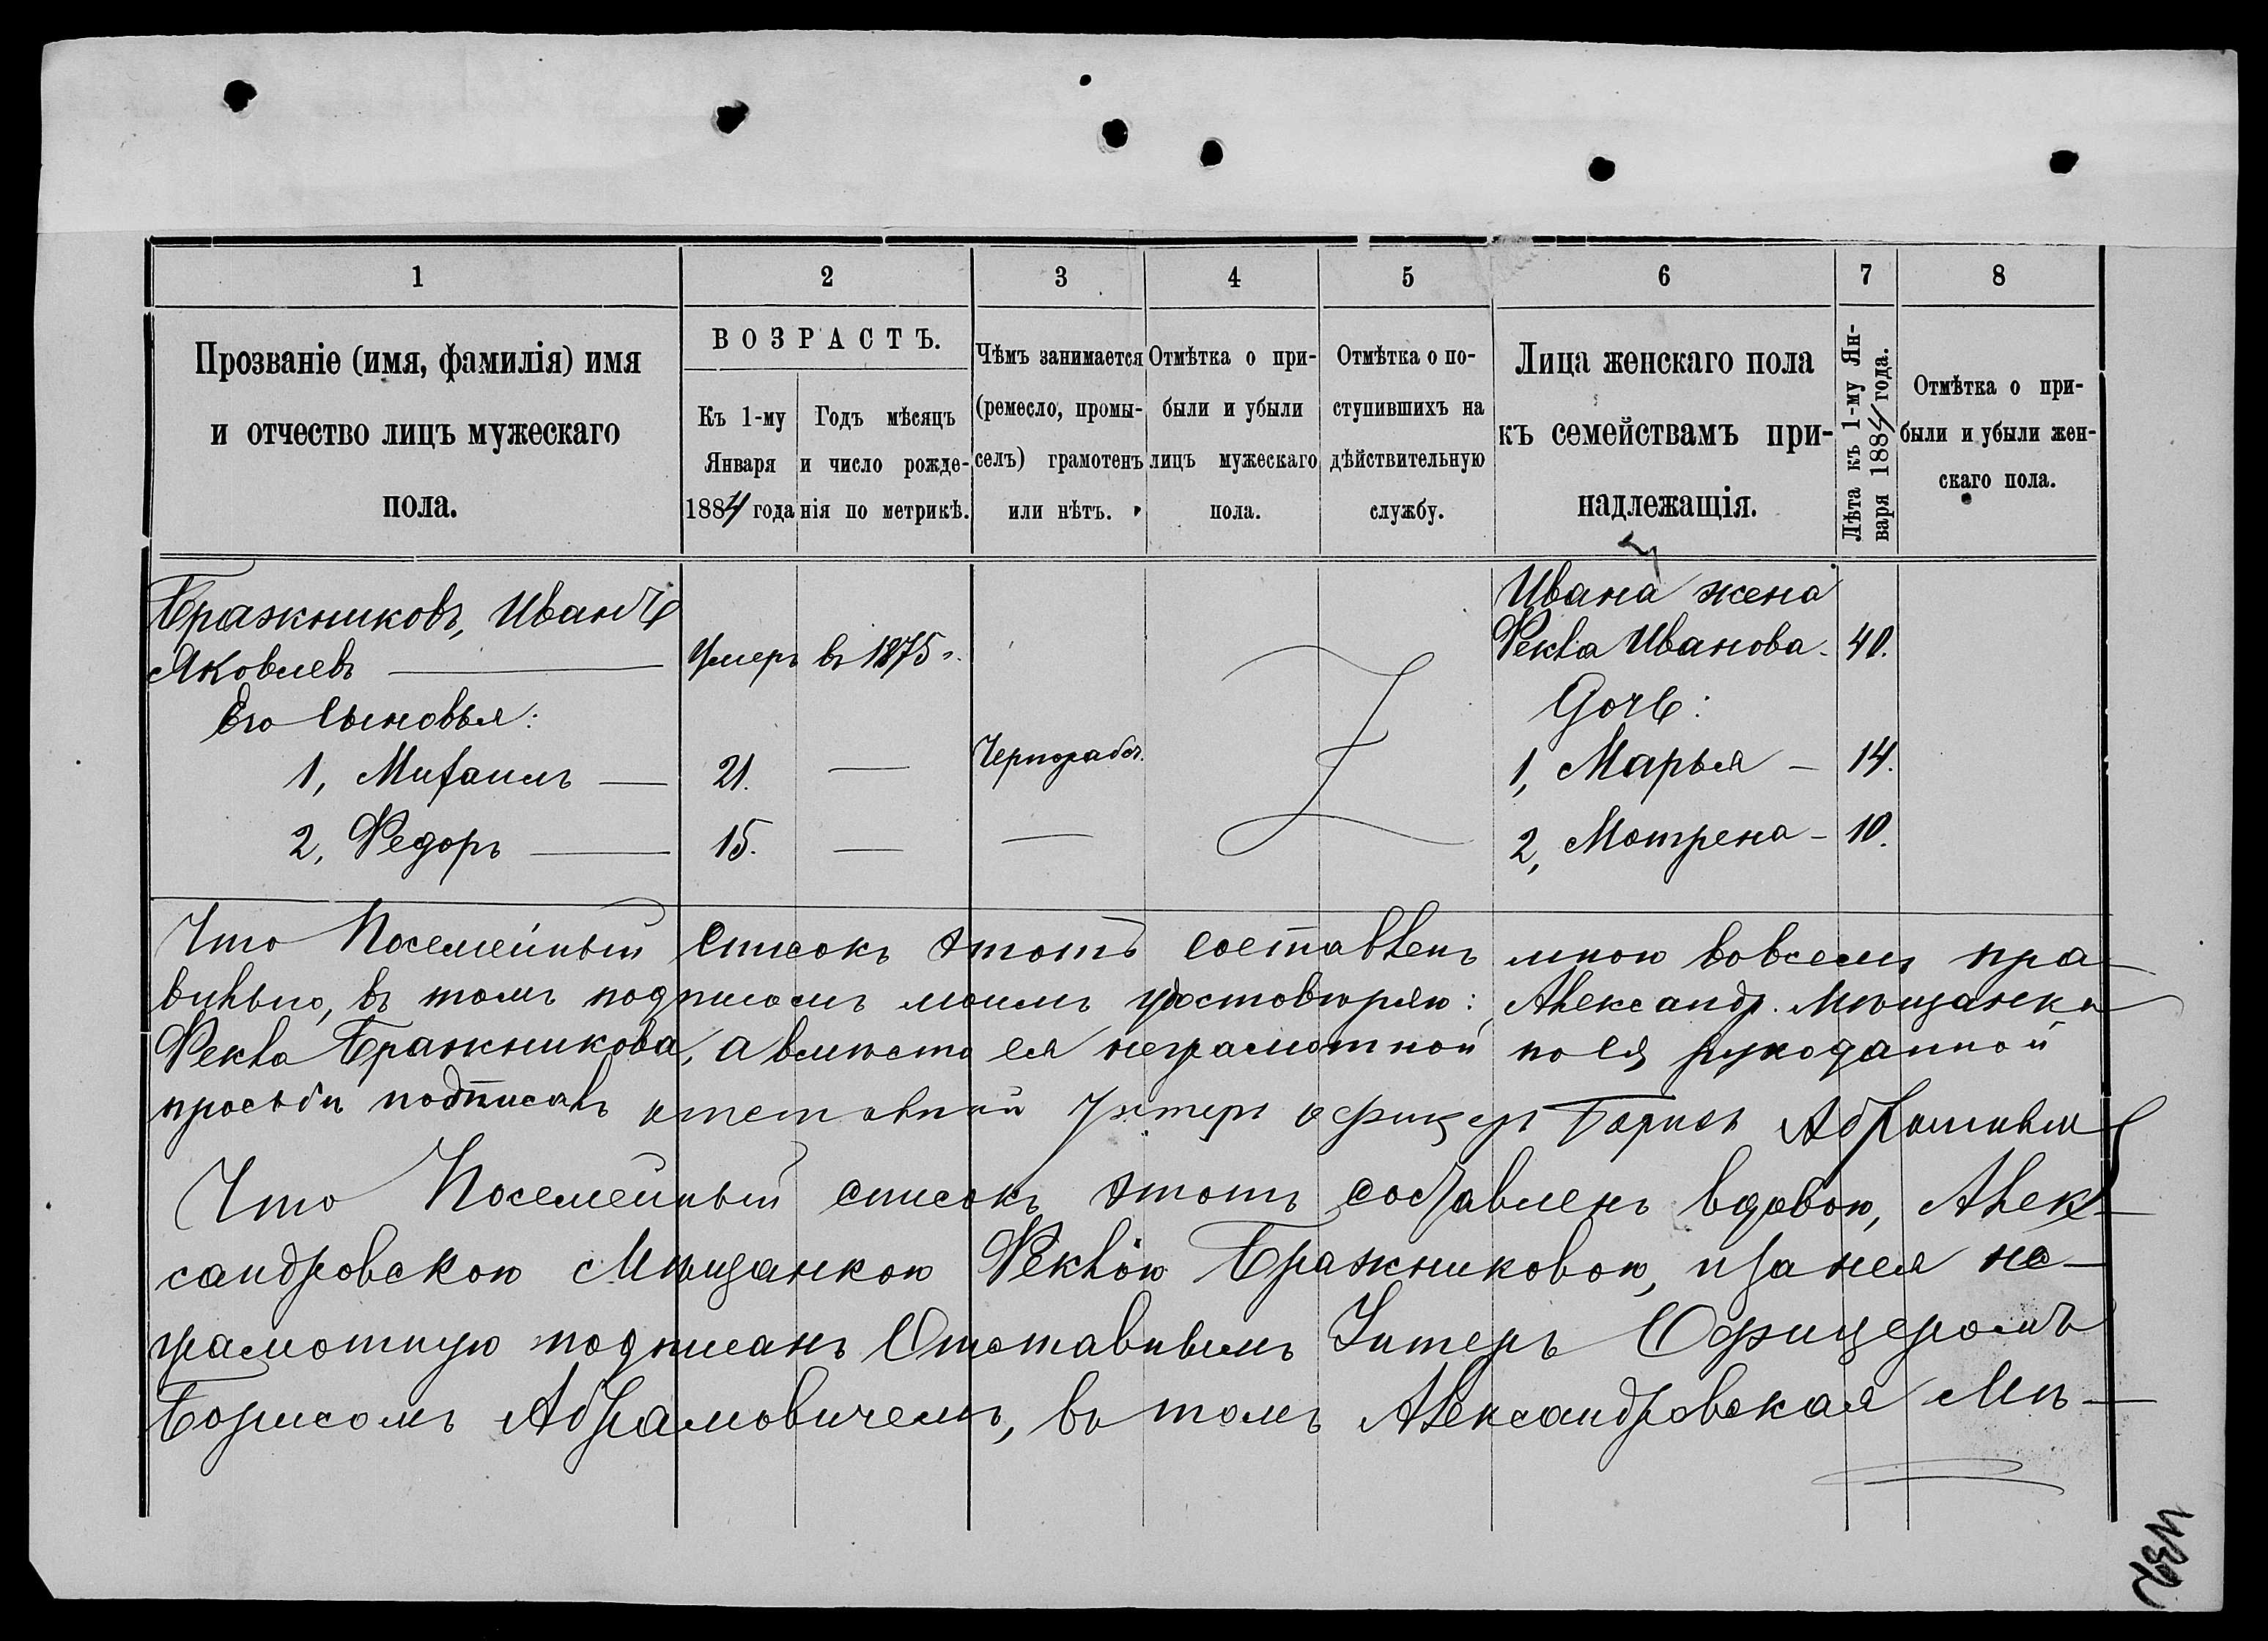 1 2 3 4 5 6 7 8
Прозваніе (имя, фамилія) имя
и отчество лицъ мужескаго
пола.
ВОЗРАСТЪ.
Къ 1-му
Января
1884 года
Годъ мѣсяцъ
и число рожде-
нія по метрикѣ.
Чѣмъ занимается
(ремесло, промы-
селъ) грамотенъ
или нѣтъ.
Отмѣтка о при-
были и убыли
лицъ мужескаго
пола.
Отмѣтка о по-
ступившихъ на
дѣйствительную
службу.
Лица женскаго пола
къ семействамъ при-
надлежащія.
Лѣта къ 1-му Ян-
варя 1884 года.
Отмѣтка о при-
были и убыли жен-
скаго пола.
Бражниковъ, Иванъ
Яковлевъ — Умеръ въ 1875 г.
Его Сыновья:
1, Михаилъ — 21. — Чернораб.
2, Федоръ — 15. — —
Ивана жена
Фекла Иванова. 40.
Дочь:
1, Марья — 14.
2, Мотрена — 10.
Что Посемейный Списокъ этотъ составленъ мною вовсемъ пра-
вильно, въ томъ подписомъ моимъ удостовѣряю: Александр. Мѣщанка
Фекла Бражникова, а вмѣсто ея неграмотной по ея рукоданной
просьбѣ подписалъ отставной Унтеръ офицеръ Борисъ
Что Посемейный списокъ этотъ составленъ вдовою, Алек-
сандровскою Мѣщанкою Феклою Бражниковою, и за нея не-
грамотную подписанъ Отставнымъ Унтеръ Офицеромъ
Борисомъ Абрамовичемъ, въ томъ Александровская Мѣ-